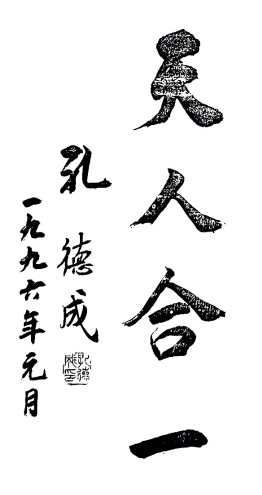 天人合一
孔德成
一九九六年元月